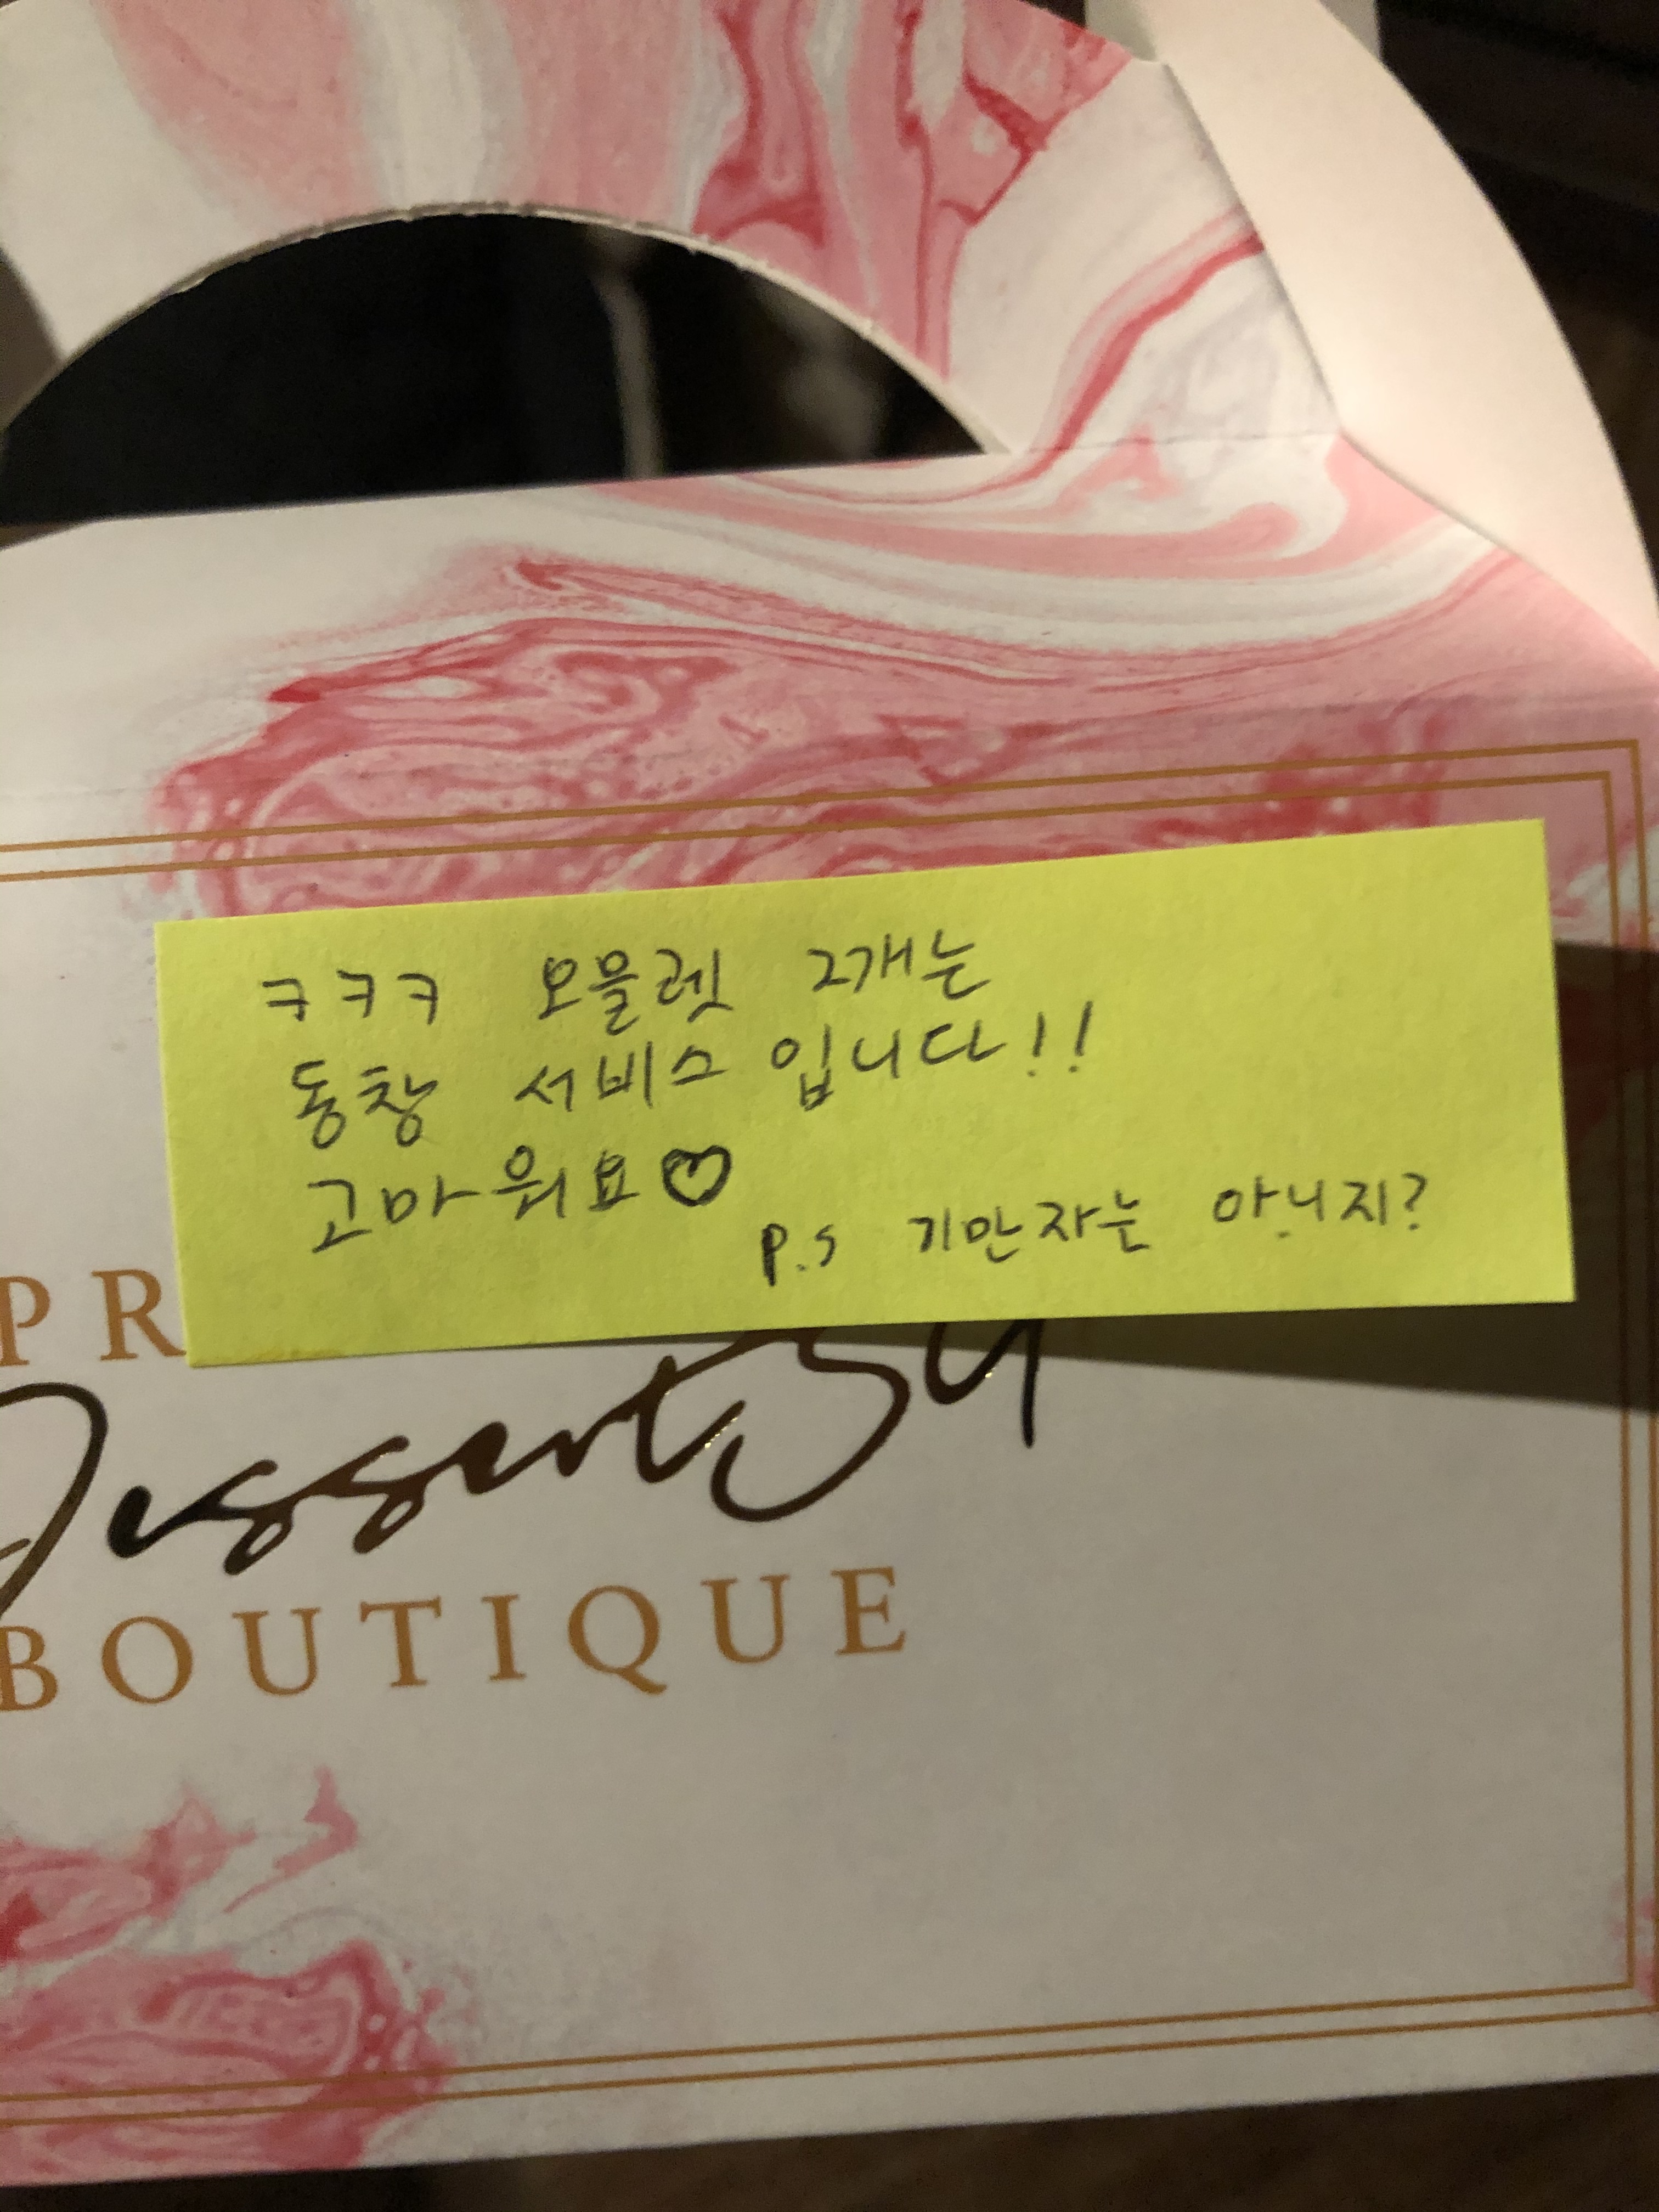 ㅋㅋㅋ 오믈렛 2개는
동창 서비스입니다!!
고마워요♡
P.S 기만자는 아니지?
PR
Dessert39
BOUTIQUE